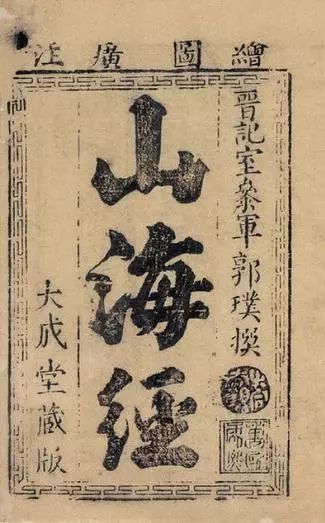 繪圖廣註
晉記室參軍郭璞撰
山海經
大成堂藏版